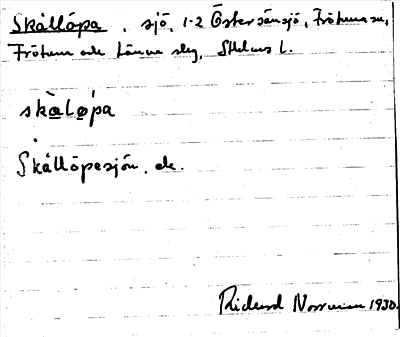 Skållöpa, sjö, 1-2 Östersänsjö, Frötuna sn,
Frötuna och Länna slg, Sthlms l.
skàlǿpa
Skållöpesjön, ek.
Rickard Norrman 1930.